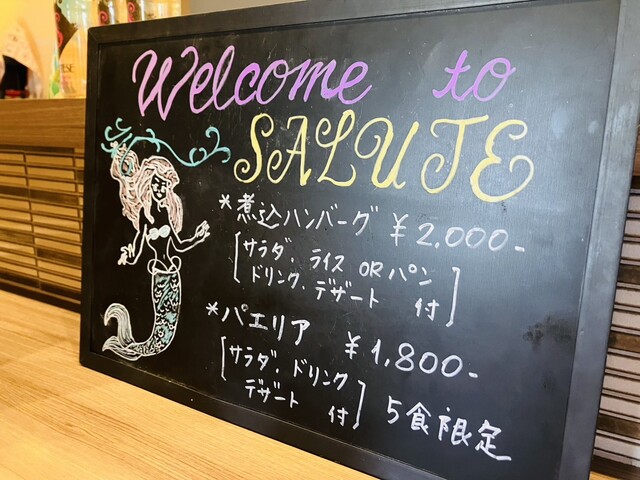 Welcome to
SALUTE
*煮込ハンバーグ ¥2.000-
[サラダ、ライス ORパン
ドリンク、デザート 付]
*パエリア ¥1,800-
[サラダ、ドリンク
デザート 付] 5食限定